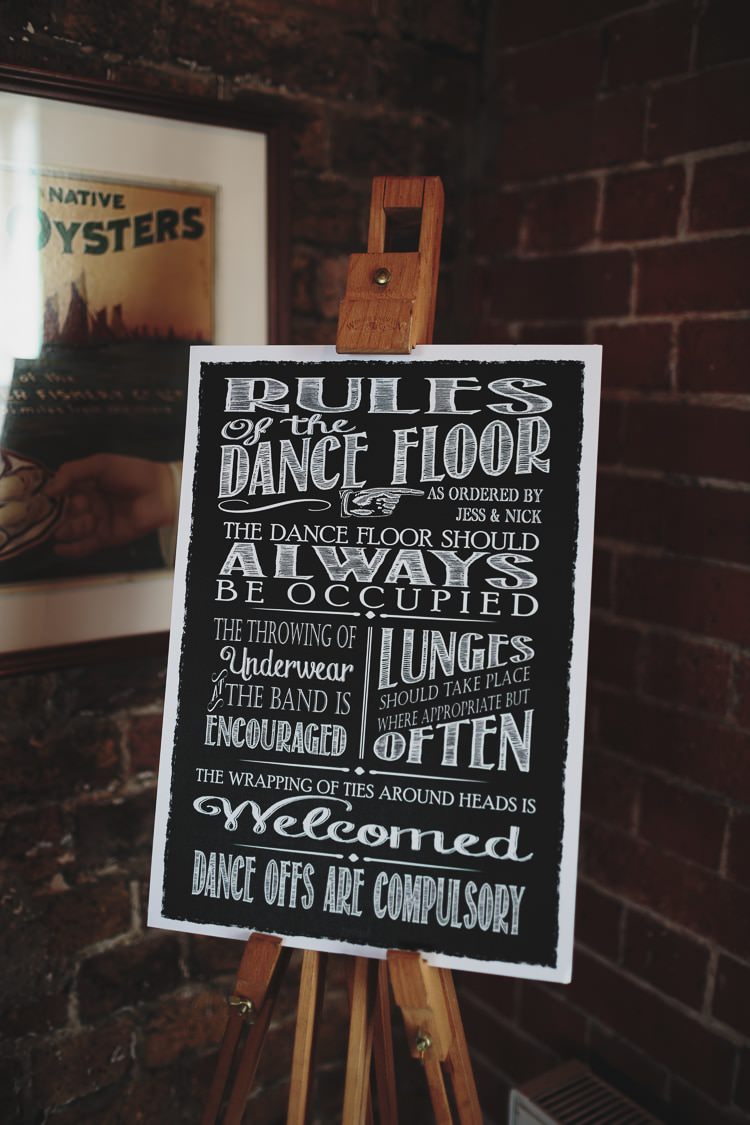 NATIVE
OYSTERS
of the
RULES
Of the
DANCE FLOOR
AS ORDERED BY
JESS & NICK
THE DANCE FLOOR SHOULD
ALWAYS
BE OCCUPIED
THE THROWING OF
Underwear
AT THE BAND IS
ENCOURAGED
LUNGES
SHOULD TAKE PLACE
WHERE APPROPRIATE BUT
OFTEN
THE WRAPPING OF TIES AROUND HEADS IS
Welcomed
DANCE OFFS ARE COMPULSORY